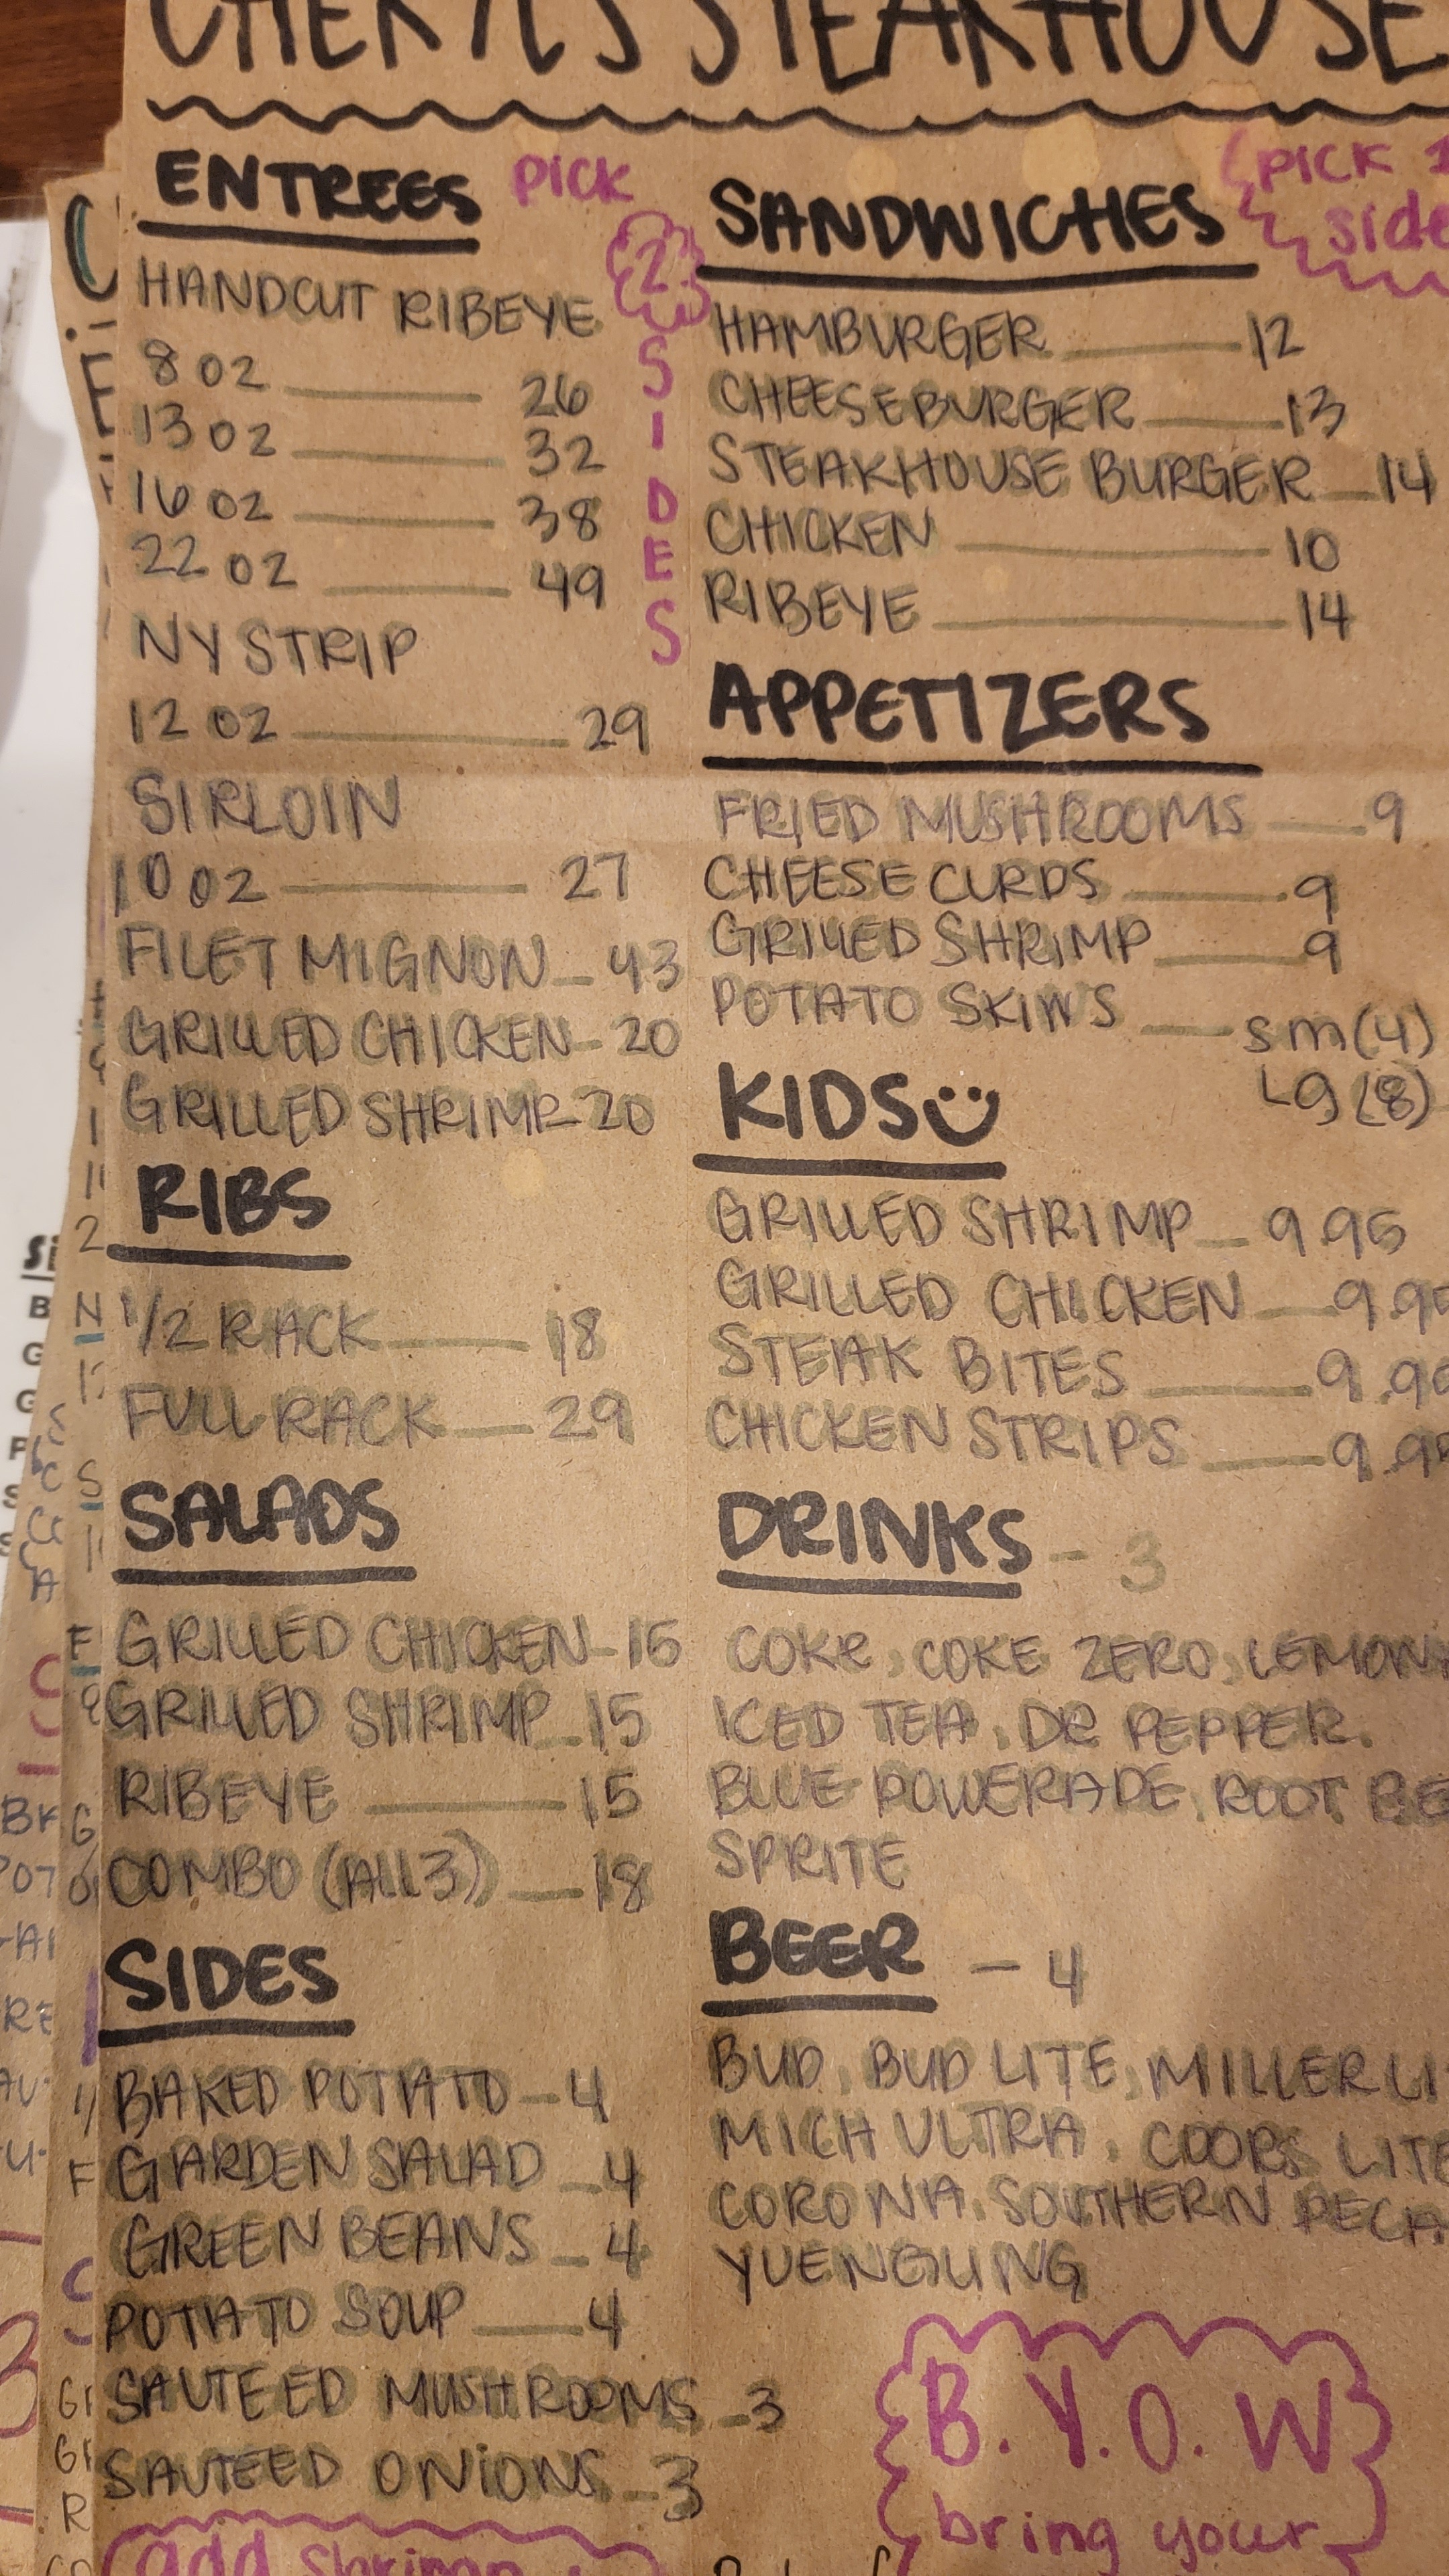 CHERYL'S STEAKHOUSE
ENTREES PICK
2
SIDES
HANDCUT RIBEYE
8 OZ 26
13 OZ 32
16 OZ 38
22 OZ 49
NY STRIP
12 OZ 29
SIRLOIN
10 OZ 27
FILET MIGNON 43
GRILLED CHICKEN 20
GRILLED SHRIMP 20
RIBS
1/2 RACK 18
FULL RACK 29
SALADS
GRILLED CHICKEN-15
GRILLED SHRIMP 15
RIBEYE 15
COMBO (ALL 3) 18
SIDES
BAKED POTATO-4
GARDEN SALAD 4
GREEN BEANS 4
POTATO SOUP 4
SAUTEED MUSHROOMS 3
SAUTEED ONIONS 3
add shrimp
SANDWICHES
PICK 1
side
HAMBURGER 12
CHEESEBURGER 13
STEAKHOUSE BURGER 14
CHICKEN 10
RIBEYE 14
APPETIZERS
FRIED MUSHROOMS 9
CHEESE CURDS 9
GRILLED SHRIMP 9
POTATO SKINS sm(4)
Lg(8)
KIDS
GRILLED SHRIMP 9.95
GRILLED CHICKEN 9.95
STEAK BITES 9.95
CHICKEN STRIPS 9.95
DRINKS - 3
COKE, COKE ZERO, LEMON
ICED TEA, DR PEPPER,
BLUE POWERADE, ROOT BE
SPRITE
BEER - 4
BUD, BUD LITE, MILLER LI
MICH ULTRA, COORS LITE
CORONA, SOUTHERN PECA
YUENGLING
B.Y.O.W
bring your